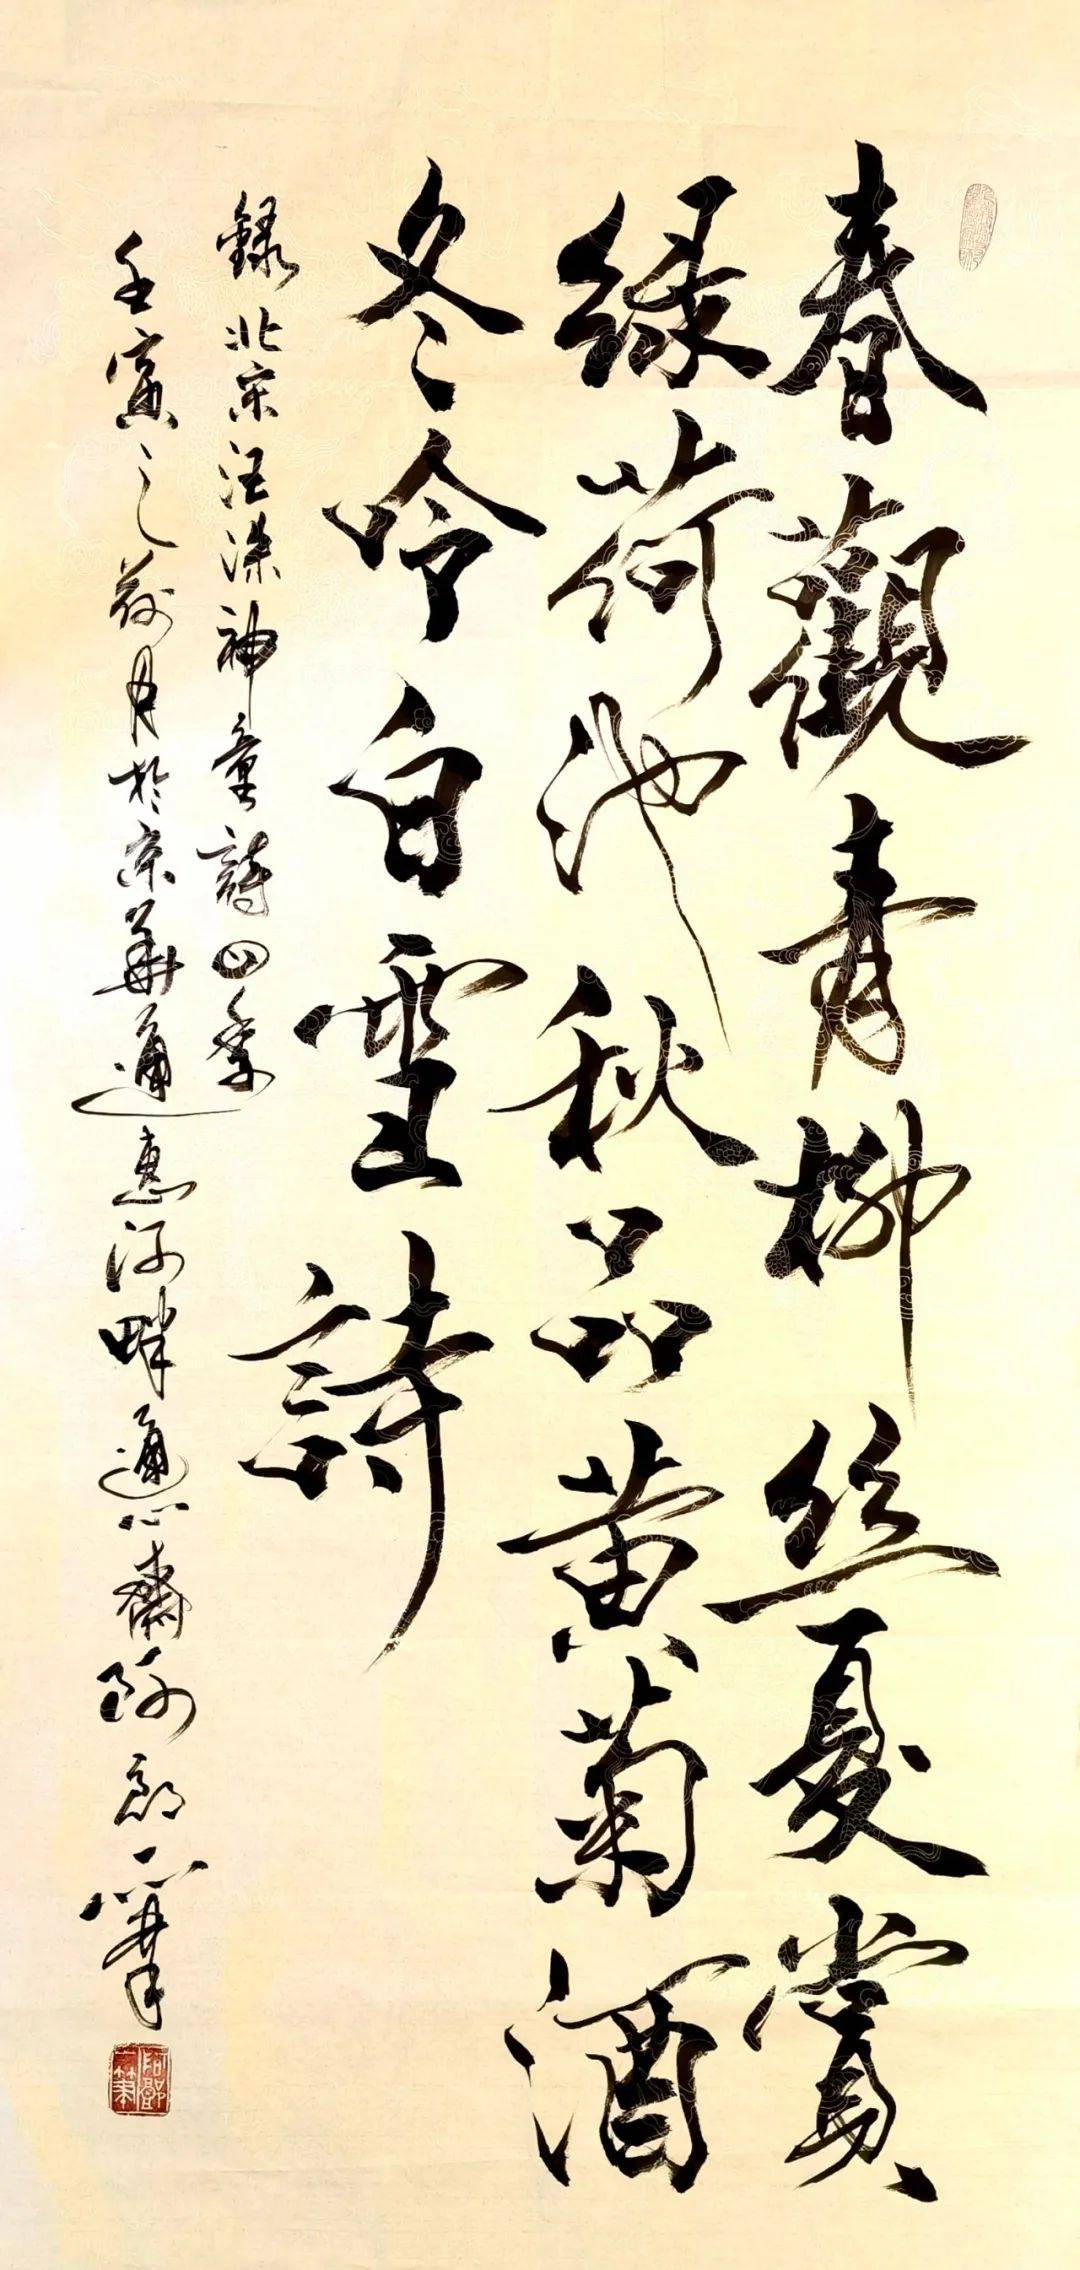 春觀青柳丝夏賞
绿荷池秋品黄菊酒
冬吟白雪詩
録北宋汪洙神童詩四季
壬寅之荷月於京華通惠河畔通心齋阿郎一筆